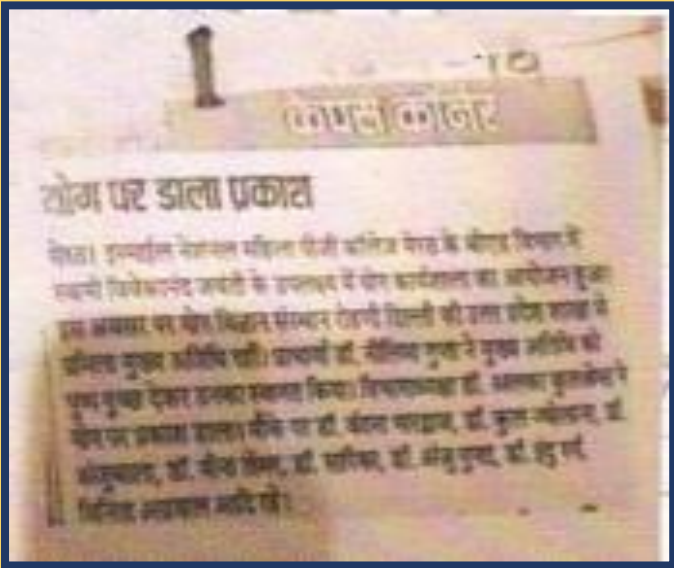 कैंपस कॉर्नर
योग पर डाला प्रकाश
मेरठ। इस्माईल नेशनल महिला पीजी कॉलिज मेरठ के बीएड विभाग में
स्वामी विवेकानंद जयंती के उपलक्ष्य में योग कार्यशाला का आयोजन हुआ।
इस अवसर पर योग विज्ञान संस्थान रोहणी दिल्ली की उत्तर प्रदेश शाखा से
मुख्य अतिथि रहीं। प्राचार्या डॉ. नीलिमा गुप्ता ने मुख्य अतिथि को
पुष्प गुच्छ देकर उनका स्वागत किया। विभागाध्यक्षा डॉ. अलका कुलश्रेष्ठ ने
योग पर प्रकाश डाला। मौके पर डॉ. भारद्वाज, डॉ. डॉ.
डॉ. डॉ. सारिका, डॉ. अंजु गुप्ता, डॉ. इंदु गर्ग,
अग्रवाल आदि रहे।